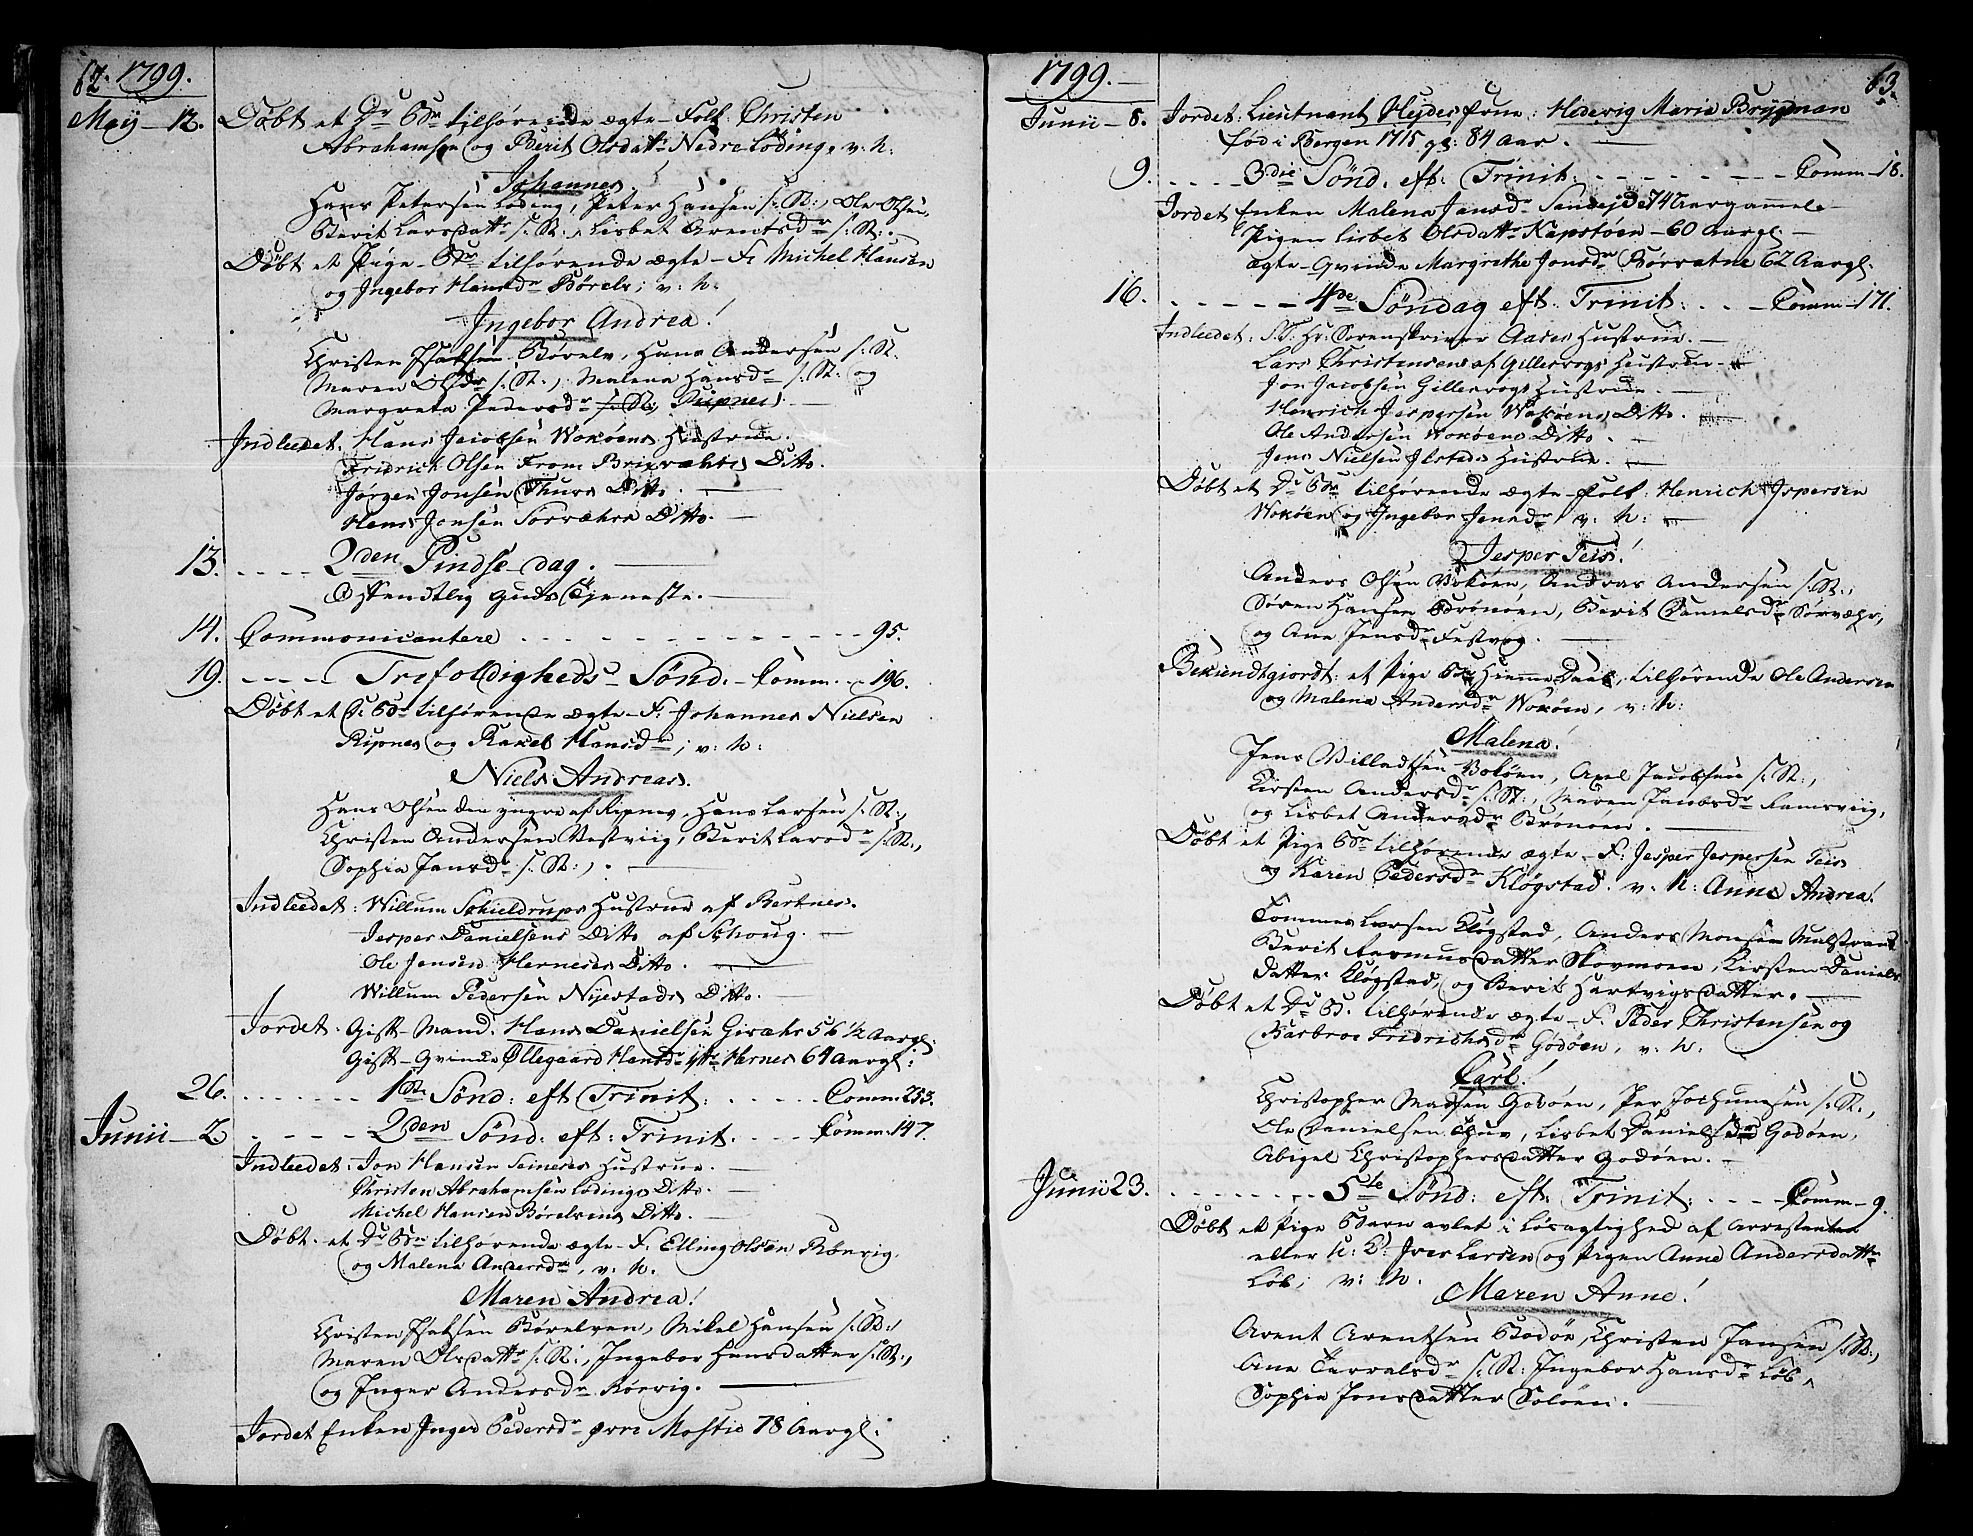 62. 1799.
Maij – 12. Døbt et Dr: Bn tilhørende ægte-Folk Christen
Abrahamsen og Berit Olsdatr Nedre Løding, v: n:
Johannes.
Hans Petersen Løding, Peter Hansen s: St:, Ole Olsen
Berit Larsdatr s: St:, Lisbet Arentsdr s: St:.
Døbt et Pige-Bn tilhørende ægte-F: Michel Hansen
og Ingebor Hansdr Børelv; v: n:
Ingebor Andrea!
Christen Isaksen Børelv, Hans Andersen s: St:
Maren Olsdr s: St:, Malena Hansdr s: St: og
Margreta Pedersdr s: St: Ripnes.
Indleedet. Hans Jacobsen Wokøens Hustrue.
Fridrich Olsen From Brixvæhrs Ditto.
Jørgen Jonsen Thuvs Ditto.
Hans Jonsen Sørvæhrs Ditto.
13. – – – – 2den Pindse-dag.
Offendtlig Guds Tjeneste.
14. Commonicantere – – – – – 95.
19. – – – – Trefoldigheds-Sønd. – Comm. – 196.
Døbt et D: Bn tilhørende ægte-F: Johannes Nielsen
Ripnes og Rakel Hansdr; v: n:
Niels Andreas.
Hans Olsen den yngre af Ripnes, Hans Larsen s: St:,
Christen Andersen Vestviig, Berit Larsdr s: St:,
Sophia Jansdr s: St:,.
Indleedet: Willum Schieldrups Hustrue af Bertnes.
Jesper Danielsens Ditto af Schoug.
Ole Jensen Herneses Ditto.
Willum Pedersen Nyestads Ditto.
Jordet. Gift-Mand. Hans Danielsen Givæhr 56 1/2 Aargl:
Gift-Qvinde Øllegaard Hansdr Hernes 64 aargl:
26. – – – – 1ste Sønd: eft Trinit: – – – – Comm: 233.
Junii – 2 – – – – 2den Sønd: eft: Trinit. – – – Comm: 147.
Indleedet: Jon Hansen Seineses Hustrue.
Christen Abrahamsen Lødings Ditto.
Michel Hansen Børelvens Ditto.
Døbt. et Dr Bn tilhørende ægte-F. Elling Olsen Rørvig
og Malena Andersdr, v: n.
Maren Andrea!
Christen Isaksen Børelven, Mikel Hansen s: St:,
Maren Olsdatr s: St:, Ingebor Hansdatter s: St:,
og Inger Andersdr Rørvig.
Jordet Enken Inger Pedersdr øvre Mostie 78 Aargl:
1799. 63.
Junii – 8. Jordet: Lieutnant Hejdes Frue: Hedewig Maria Brygman
fød i Bergen 1715 gl: 84 Aar.
9. – – – – 3die Sønd. eft: Trinit. – – – – Comm – 18.
Jordet Enken Malena Jansdr 74 Aargammel
Pigen Lisbet Olsdatr Kapstøen – 60 aargl.
ægte-Qvinde Margrethe Jonsdr Børvatne 62 Aargl:
16. – – – – 4de Søndag eft: Trinit: – – Comm – 171.
Indleedet: S. T. Hr: Sorenskriver Aars Hustrue.
Lars Christensens af Gillesvogs Hustrue
Jon Jacobsen Gillesvogs Hustrue
Henrich Jespersen Wokøens Ditto.
Ole Andersen Wokøens Ditto.
Jens Nielsen Ilstads Hustrue.
Døbt et Dr Bn tilhørende ægte-Folk: Henrich Jespersen
Wokøen og Ingebor Jensdr, v: n:
Jesper Teis!
Anders Olsen Vokøen, Andreas Andersen s: St:,
Søren Hansen Brønøen, Berit Danielsdr Sørvæhr,
og Ane Jensdr Festvog.
Bekiendtgiordt: et Pige Bn Hiemme-Døbt, tilhørende Ole Andersen
og Malena Andersdr Wokøen, v: n:
Malena!
Jens Villadsen Vokøen, Axel Jacobsen s: St:,
Kirsten Andersdr s: St:, Maren Jacobsdr Ramsviig,
og Lisbet Andersdr Brønøen.
Døbt et Pige Bn tilhørende ægte-F: Jesper Jespersen Teis
og Karen Pedersdr Kløgstad. v: n: Anne Andrea!
Tommes Larsen Kløgstad, Anders Monsen Malstrand
Berit Rasmusdatter Skovmoen, Kirsten Daniels-
datter Kløgstad, og Berit Hartvigsdatter.
Døbt et Dr B. tilhørende ægte-F. Peder Christensen og
Barbroe Fridrichsdr Godøen, v: n.
Carl!
Christopher Madsen Godøen, Per Jochumsen s: St:,
Ole Danielsen Thuv, Lisbet Danielsdr Godøen,
Abigel Christophersdatter Godøen.
Junii 23. – – – – 5te Sønd: eft: Trinit: – – – Comm – 9.
Døbt et Pige Barn avlet i Løsagtighed af Arrestanten
eller Iver Larsen og Pigen Anne Andersdattr
Løb; v: n.
Maren Anne!
Arent Arentsen Bodøe, Christen Jansen s: St:,
Ane Tarralsdr s: St: Ingebor Hansdr Løb,
Sophia Jonsdatter Soløen.